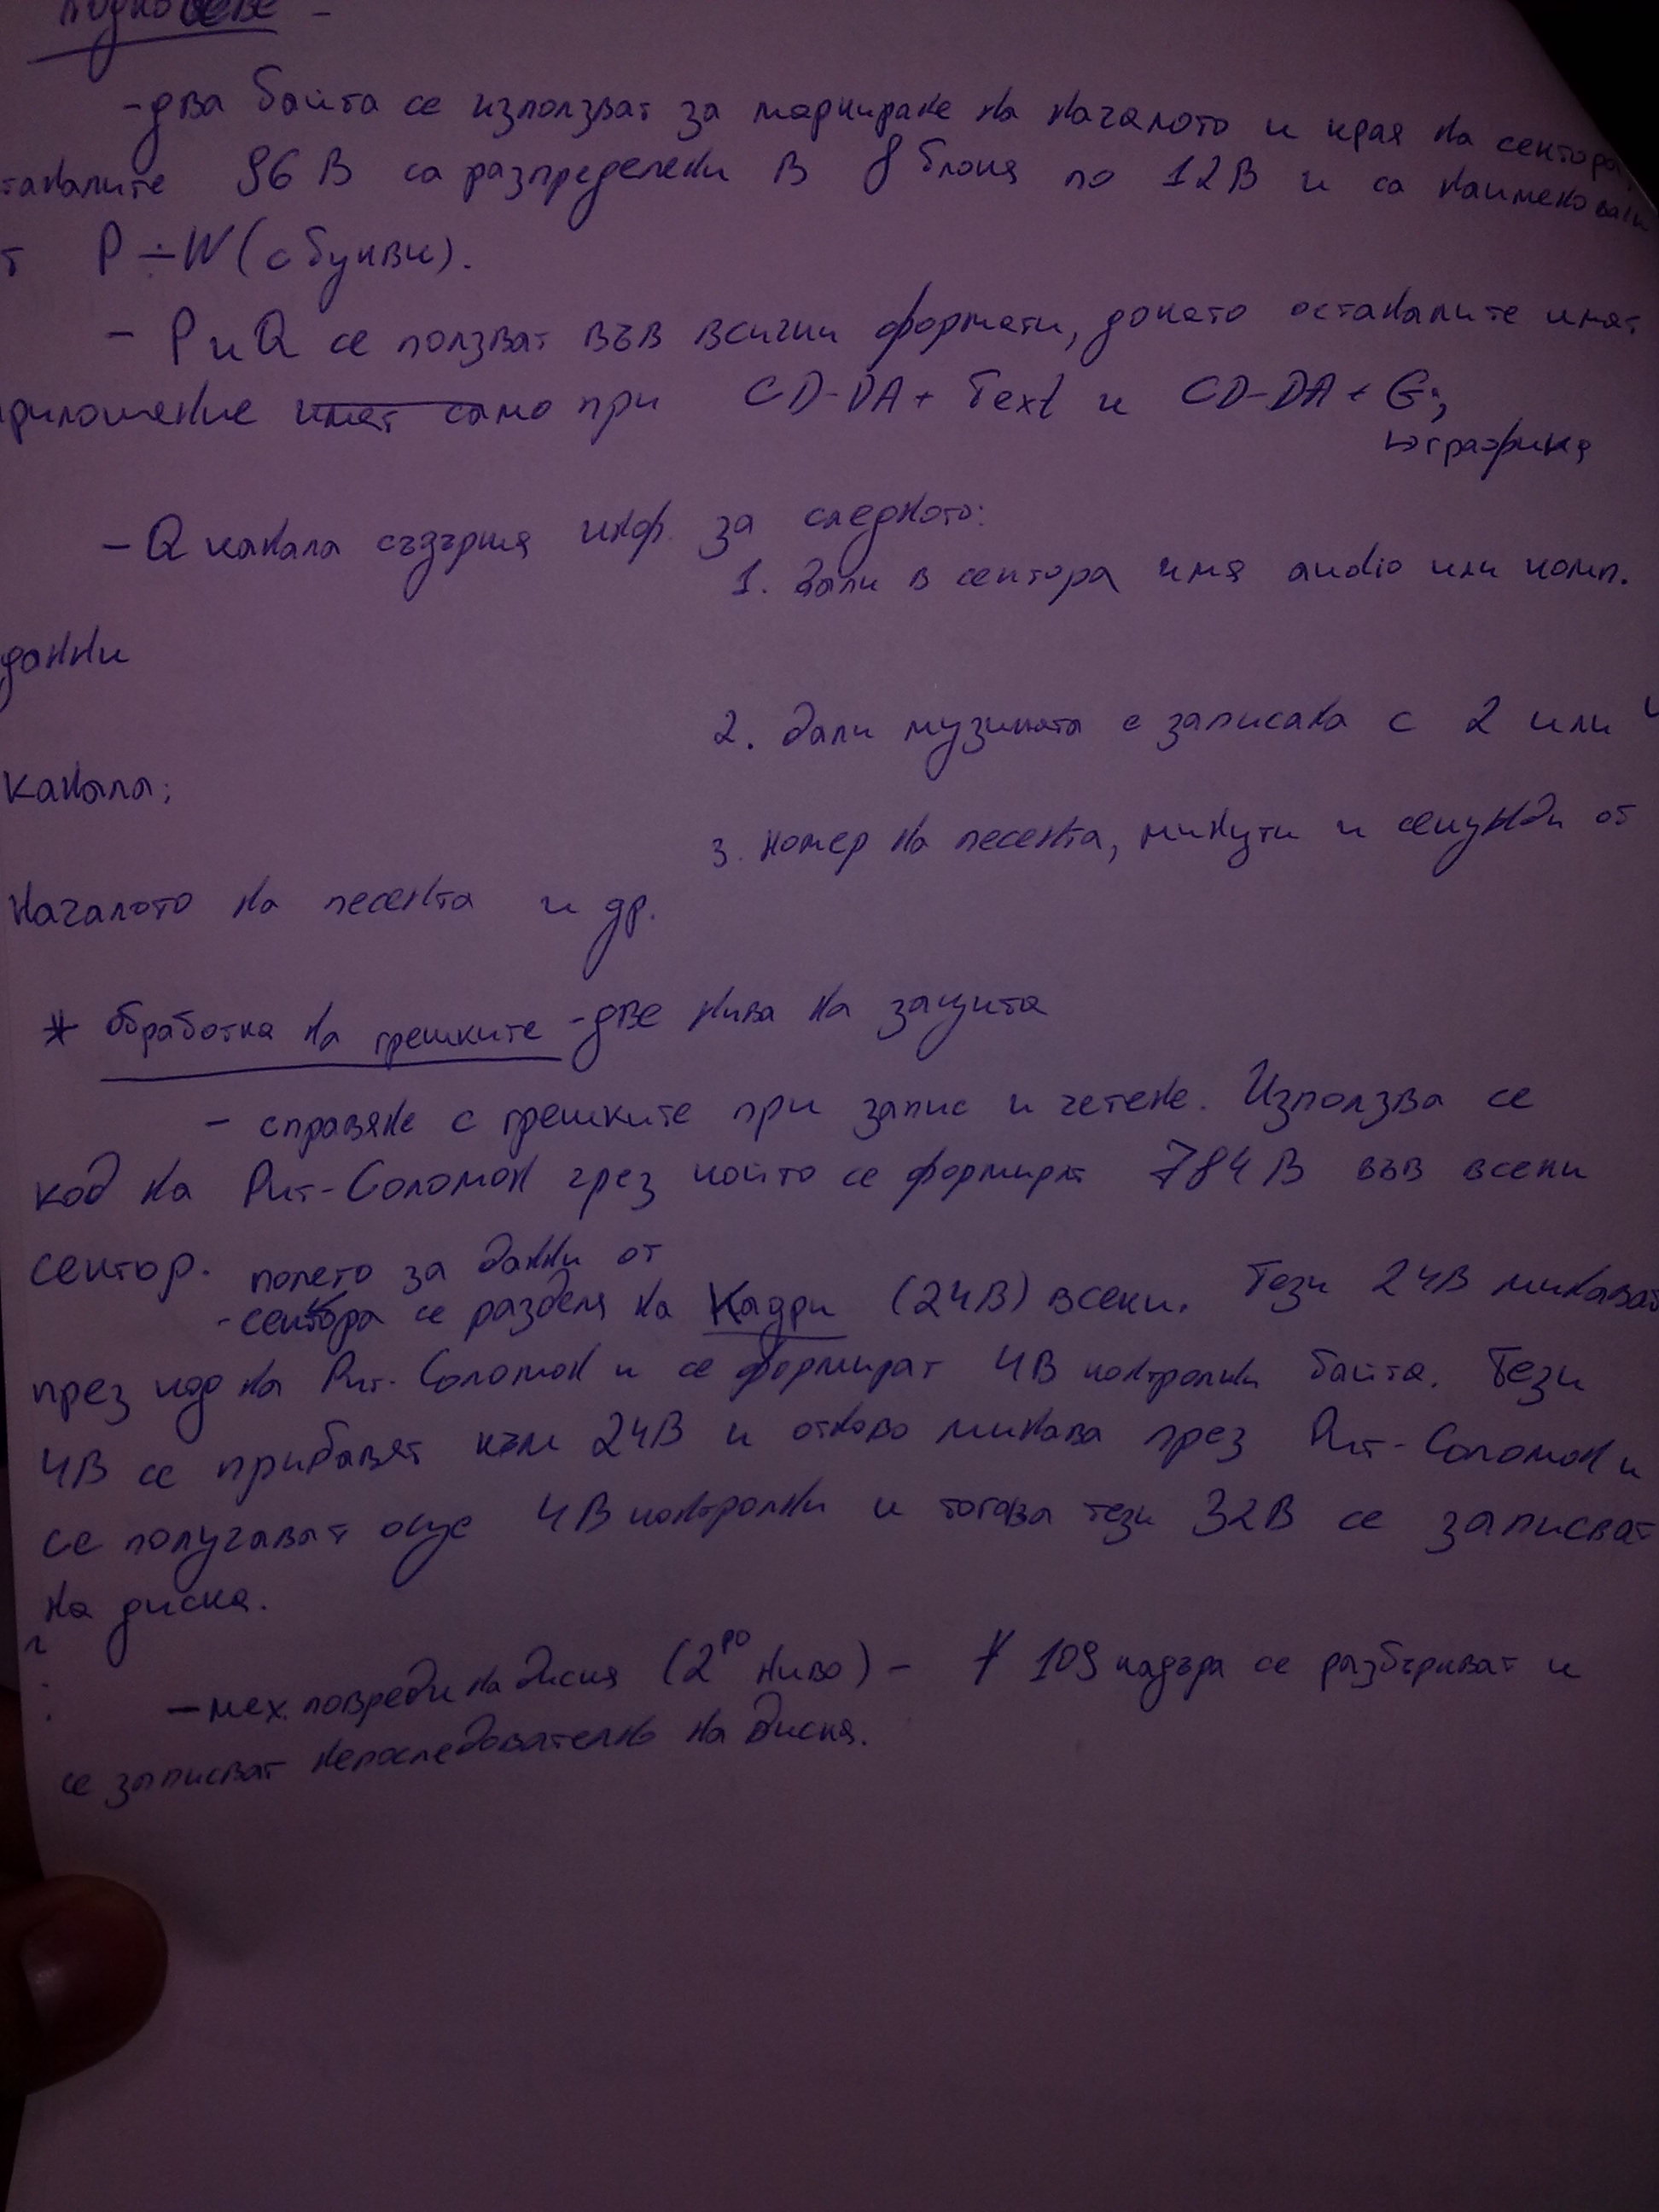 подкодове -
- два байта се използват за маркиране на началото и края на сектора,
таналите 96 B са разпределени в 8 блока по 12 B и са наименовани
т P ÷ W (с букви).
- P и Q се ползват във всички формати, докато останалите имат
риложение имат само при CD-DA + Text и CD-DA + G;
↳ графика
- Q канала съдържа инф. за следното:
1. дали в сектора има audio или комп.
данни
2. дали музиката е записана с 2 или 4
канала;
3. номер на песента, минути и секунди от
началото на песента и др.
* обработка на грешките - две нива на защита
- справяне с грешките при запис и четене. Използва се
код на Рит-Соломон чрез който се формират 784 B във всеки
сектор.
полето за данни от
- сектора се разделя на Кадри (24B) всеки. Тези 24B минават
през кода на Рит-Соломон и се формират 4B контролни байта. Тези
4B се прибавят към 24B и отново минава през Рит-Соломон и
се получават още 4B контролни и тогава тези 32B се записват
на диска.
- мех. повреди на диска (2ро ниво) - 109 кадъра се разбъркват и
се записват непоследователно на диска.